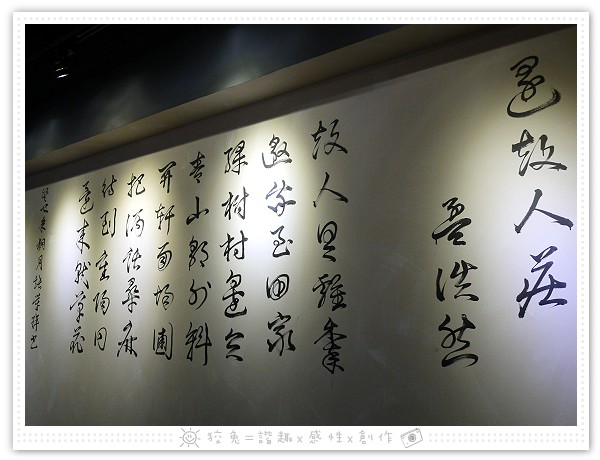 過故人莊
孟浩然
故人具雞黍
邀我至田家
綠樹村邊合
青山郭外斜
開軒面場圃
把酒話桑麻
待到重陽日
還來就菊花
桐月
書
狡兔=諧趣x感性x創作